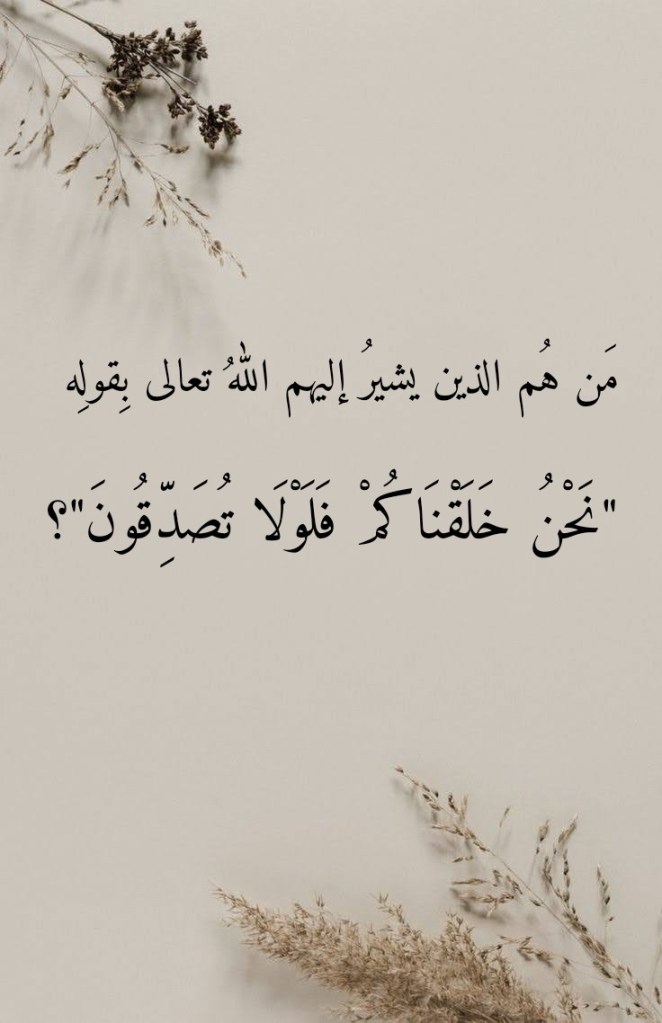 مَن هُم الذين يشيرُ إليهم اللهُ تعالى بِقولِه
"نَحْنُ خَلَقْنَاكُمْ فَلَوْلَا تُصَدِّقُونَ"؟